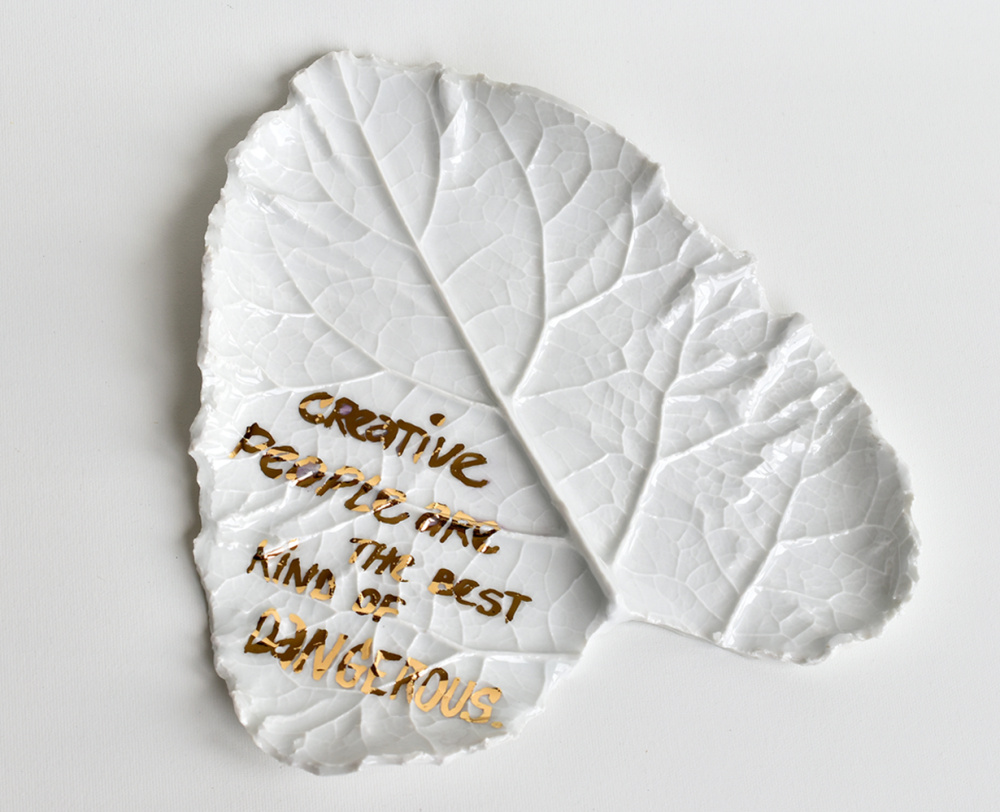 CReaTive
PEOPLE aRe
THE BEST
KIND OF
DANGEROUS.